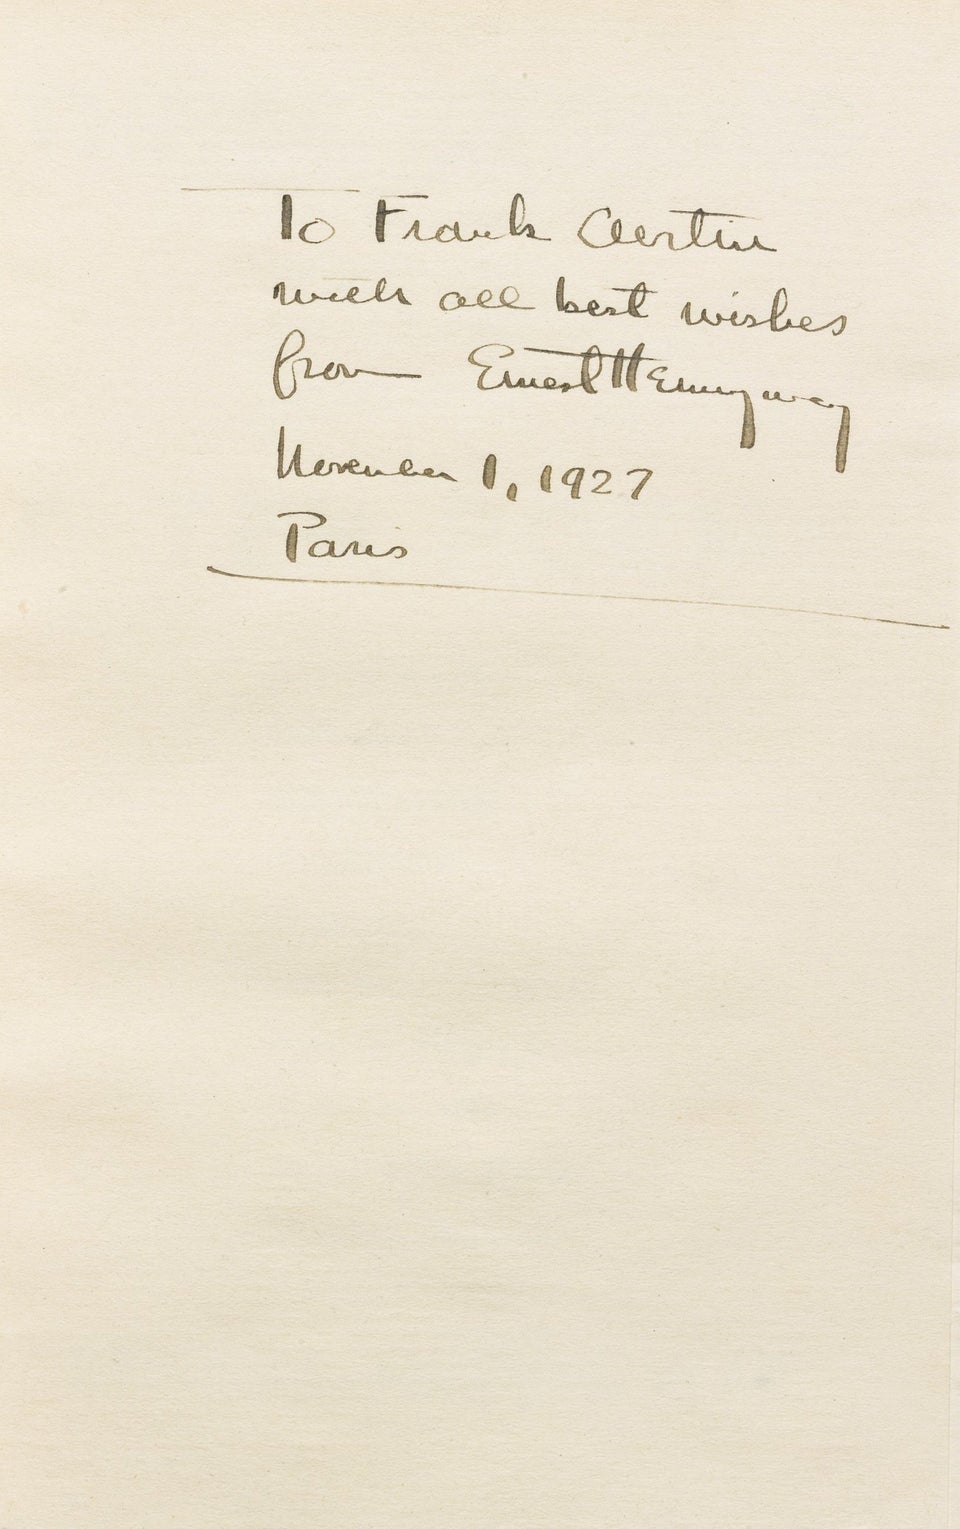 To Frank
with all best wishes
from Ernest Hemingway
November 1, 1927
Paris